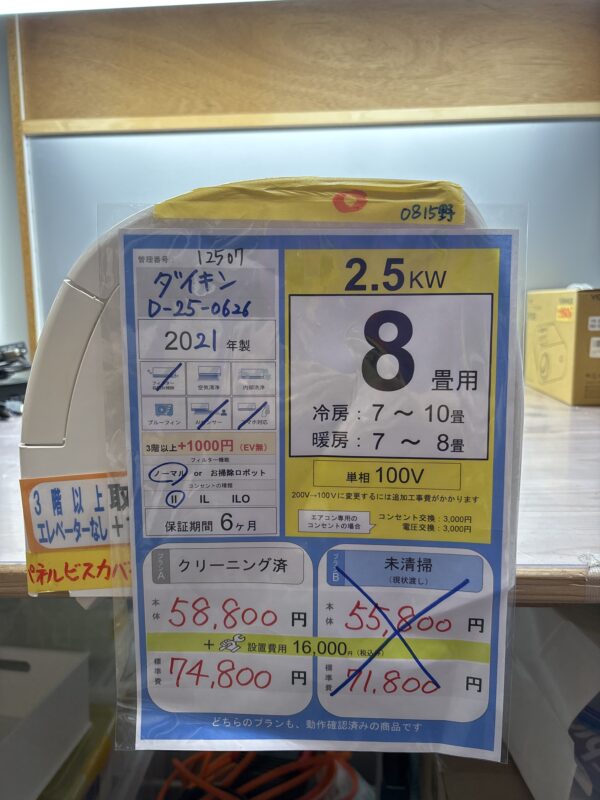 0815野
管理番号: 12507
ダイキン
D-25-0626
2021年製
空気清浄
内部洗浄
ブルーフィン
3階以上+1000円(EV無)
フィルター機能
ノーマル or お掃除ロボット
コンセントの種類
II IL ILO
保証期間 6ヶ月
2.5KW
8畳用
冷房:7～10畳
暖房:7～8畳
単相100V
200V→100Vに変更するには追加工事費がかかります
エアコン専用の
コンセントの場合
コンセント交換:3,000円
電圧交換:3,000円
3階以上取
エレベーターなし+
パネルビスカバ
プランA クリーニング済
本体 58,800円
プランB 未清掃
(現状渡し)
本体 55,800円
+ 設置費用 16,000円(税込)
標準費 74,800円
標準費 71,800円
どちらのプランも、動作確認済みの商品です